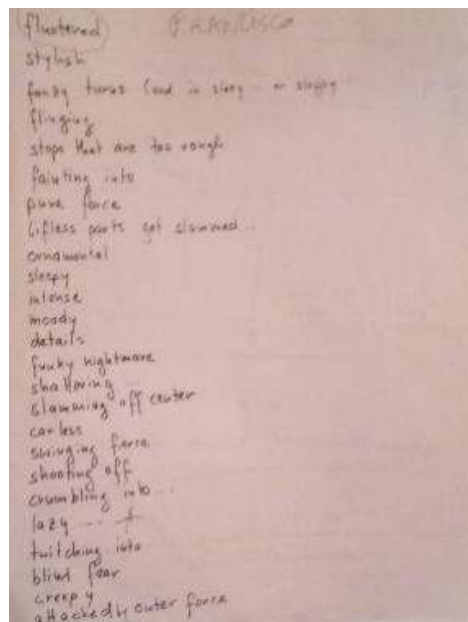 flustered FRANCISCO
stylish
funky turns (and in slang or singing
flinging
stops that are too rough
fainting into
pure force
lifless parts get slammed..
ornamental
sleepy
intense
moody
details
funky nightmare
shattering
slamming off center
carless
swinging force
shooting off
crumbling into...
lazy ...
twitching into
blind fear
creepy
attacked by outer force